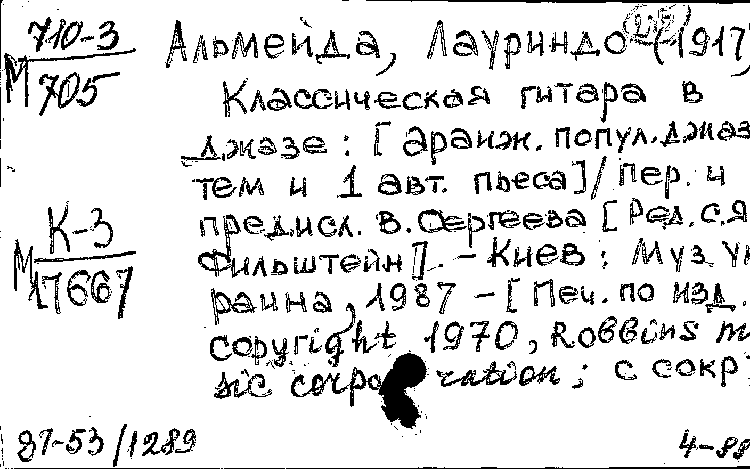 710-3
М 705
Альмейда, Лауриндо (1917)
Классическая гитара в
джазе : [Аранж. попул. джаз
тем и 1 авт. пьеса] / Пер. и
предисл. В. Сергеева [Ред. С.Я
Фильштейн]. - Киев : Муз. Ук
раина, 1987 - [Печ. по изд.
copyright 1970, Robbins m
sic corporation ; с сокр
К-3
М 17667
87-53/1289
4-88